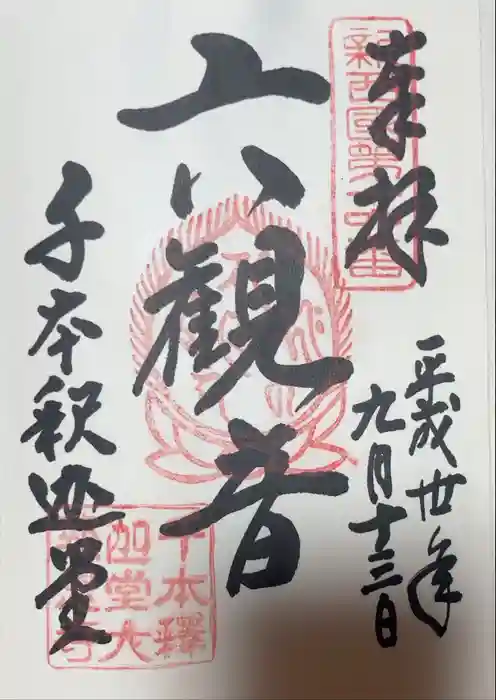 奉拝
平成丗年
九月十三日
六観音
千本釈迦堂
千本釋
迦堂大
報恩寺